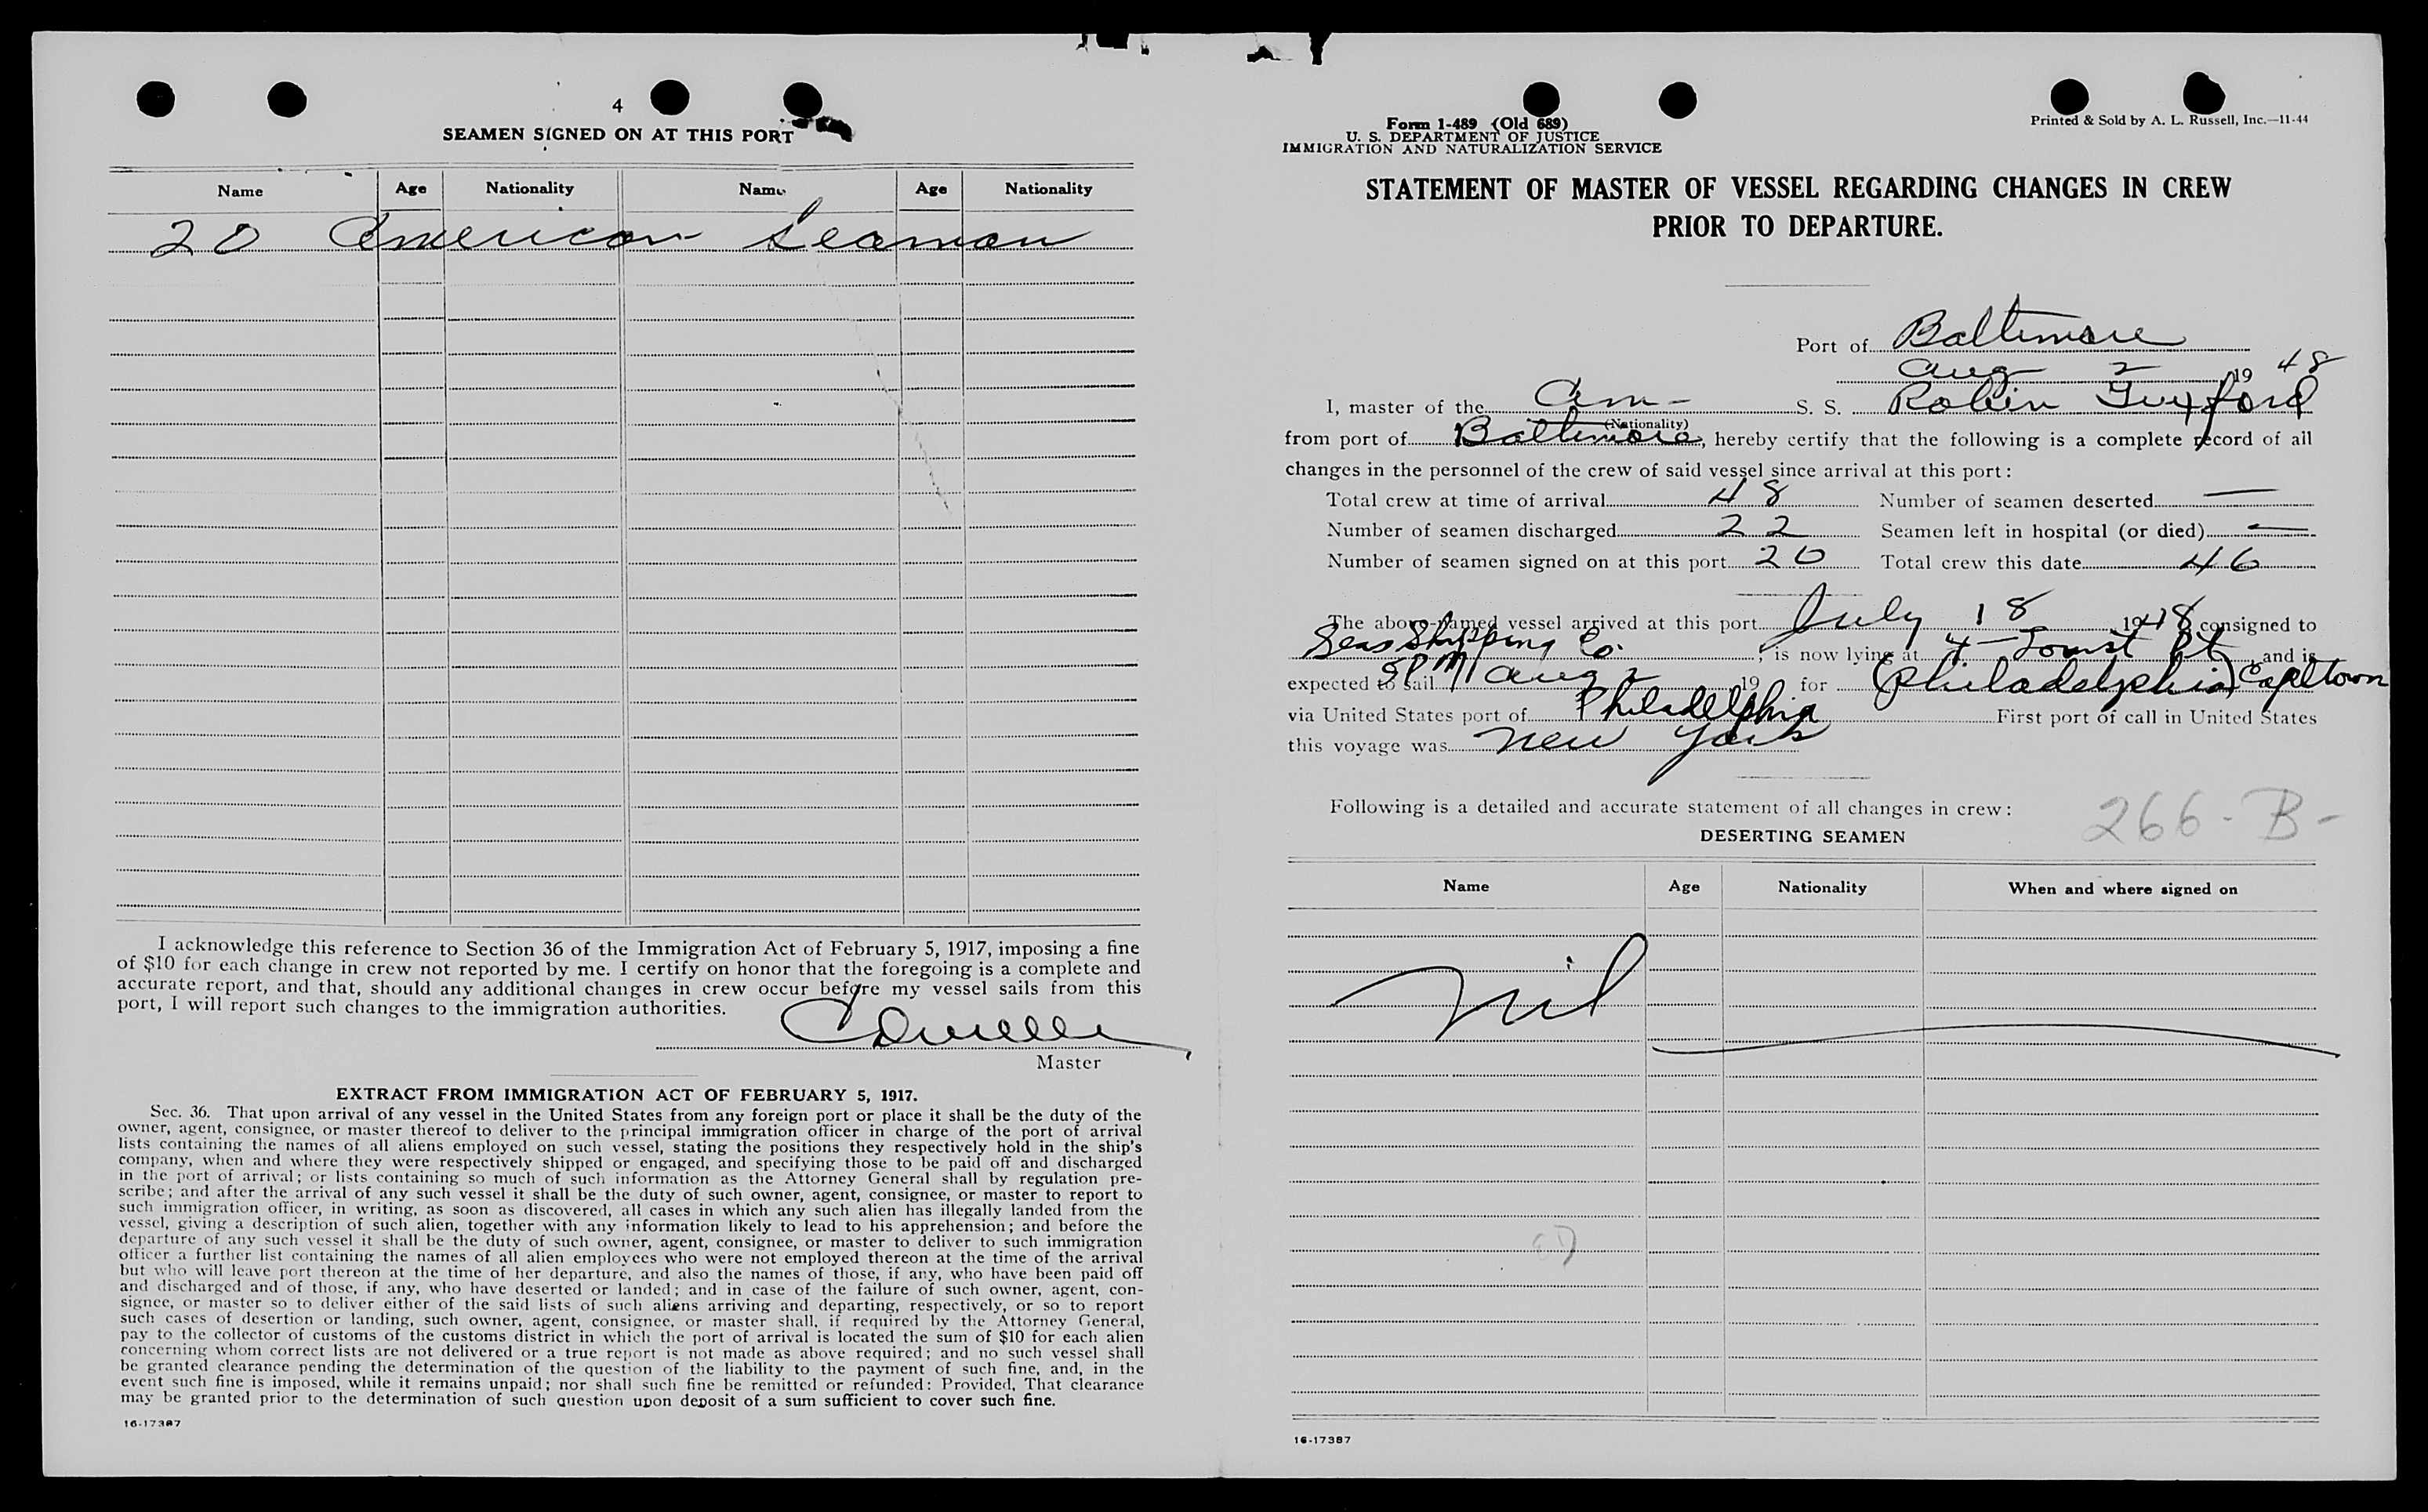 4
SEAMEN SIGNED ON AT THIS PORT
Name Age Nationality Name Age Nationality
20 American Seaman
I acknowledge this reference to Section 36 of the Immigration Act of February 5, 1917, imposing a fine
of $10 for each change in crew not reported by me. I certify on honor that the foregoing is a complete and
accurate report, and that, should any additional changes in crew occur before my vessel sails from this
port, I will report such changes to the immigration authorities.
Master
EXTRACT FROM IMMIGRATION ACT OF FEBRUARY 5, 1917.
Sec. 36. That upon arrival of any vessel in the United States from any foreign port or place it shall be the duty of the
owner, agent, consignee, or master thereof to deliver to the principal immigration officer in charge of the port of arrival
lists containing the names of all aliens employed on such vessel, stating the positions they respectively hold in the ship's
company, when and where they were respectively shipped or engaged, and specifying those to be paid off and discharged
in the port of arrival; or lists containing so much of such information as the Attorney General shall by regulation pre-
scribe; and after the arrival of any such vessel it shall be the duty of such owner, agent, consignee, or master to report to
such immigration officer, in writing, as soon as discovered, all cases in which any such alien has illegally landed from the
vessel, giving a description of such alien, together with any information likely to lead to his apprehension; and before the
departure of any such vessel it shall be the duty of such owner, agent, consignee, or master to deliver to such immigration
officer a further list containing the names of all alien employees who were not employed thereon at the time of the arrival
but who will leave port thereon at the time of her departure, and also the names of those, if any, who have been paid off
and discharged and of those, if any, who have deserted or landed; and in case of the failure of such owner, agent, con-
signee, or master so to deliver either of the said lists of such aliens arriving and departing, respectively, or so to report
such cases of desertion or landing, such owner, agent, consignee, or master shall, if required by the Attorney General,
pay to the collector of customs of the customs district in which the port of arrival is located the sum of $10 for each alien
concerning whom correct lists are not delivered or a true report is not made as above required; and no such vessel shall
be granted clearance pending the determination of the question of the liability to the payment of such fine, and, in the
event such fine is imposed, while it remains unpaid; nor shall such fine be remitted or refunded: Provided, That clearance
may be granted prior to the determination of such question upon deposit of a sum sufficient to cover such fine.
16-17387
Form 1-489 (Old 689)
U. S. DEPARTMENT OF JUSTICE
IMMIGRATION AND NATURALIZATION SERVICE
Printed & Sold by A. L. Russell, Inc.—11-44
STATEMENT OF MASTER OF VESSEL REGARDING CHANGES IN CREW
PRIOR TO DEPARTURE.
Port of Baltimore
Aug 2 1948
I, master of the Am- S. S. Robin Tuxford
(Nationality)
from port of Baltimore, hereby certify that the following is a complete record of all
changes in the personnel of the crew of said vessel since arrival at this port:
Total crew at time of arrival 48 Number of seamen deserted —
Number of seamen discharged 22 Seamen left in hospital (or died) —
Number of seamen signed on at this port 20 Total crew this date 46
The above-named vessel arrived at this port July 18 1948 consigned to
Seas Shipping Co., is now lying at 4- Pt, and is
expected to sail 5 PM Aug 2 19 for (Philadelphia) Capetown
via United States port of Philadelphia First port of call in United States
this voyage was New York
Following is a detailed and accurate statement of all changes in crew:
266-B-
DESERTING SEAMEN
Name Age Nationality When and where signed on
Nil
16-17387